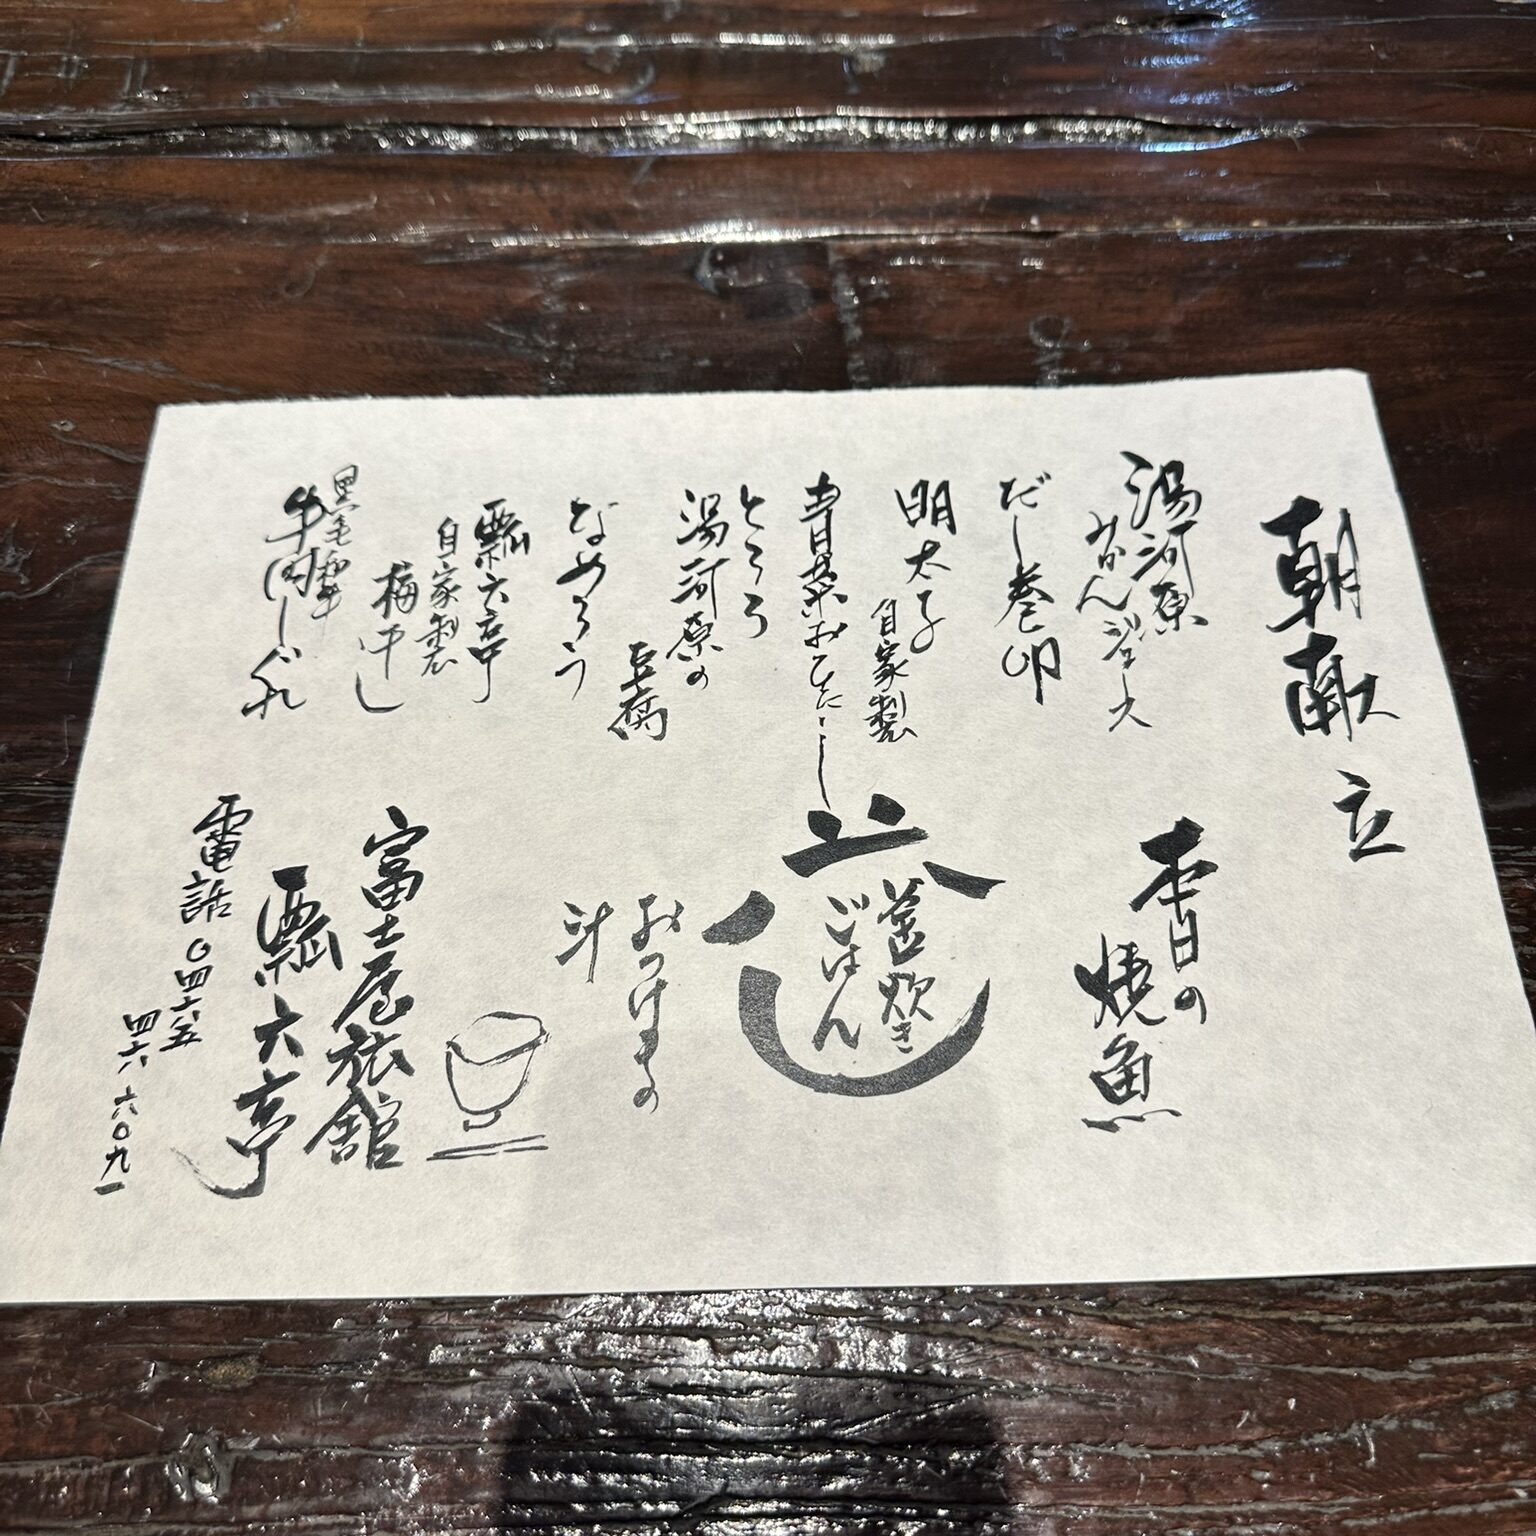 朝献立
湯河原
みかんジュース
だし巻卵
明太子
自家製
青菜おひたし
とろろ
湯河原の
豆腐
なめろう
瓢六亭
自家製
梅干し
黒毛和牛
牛肉しぐれ
本日の
焼魚
釜炊き
ごはん
おつけものの
汁
富士屋旅館
瓢六亭
電話〇四六五
四六 六〇九一